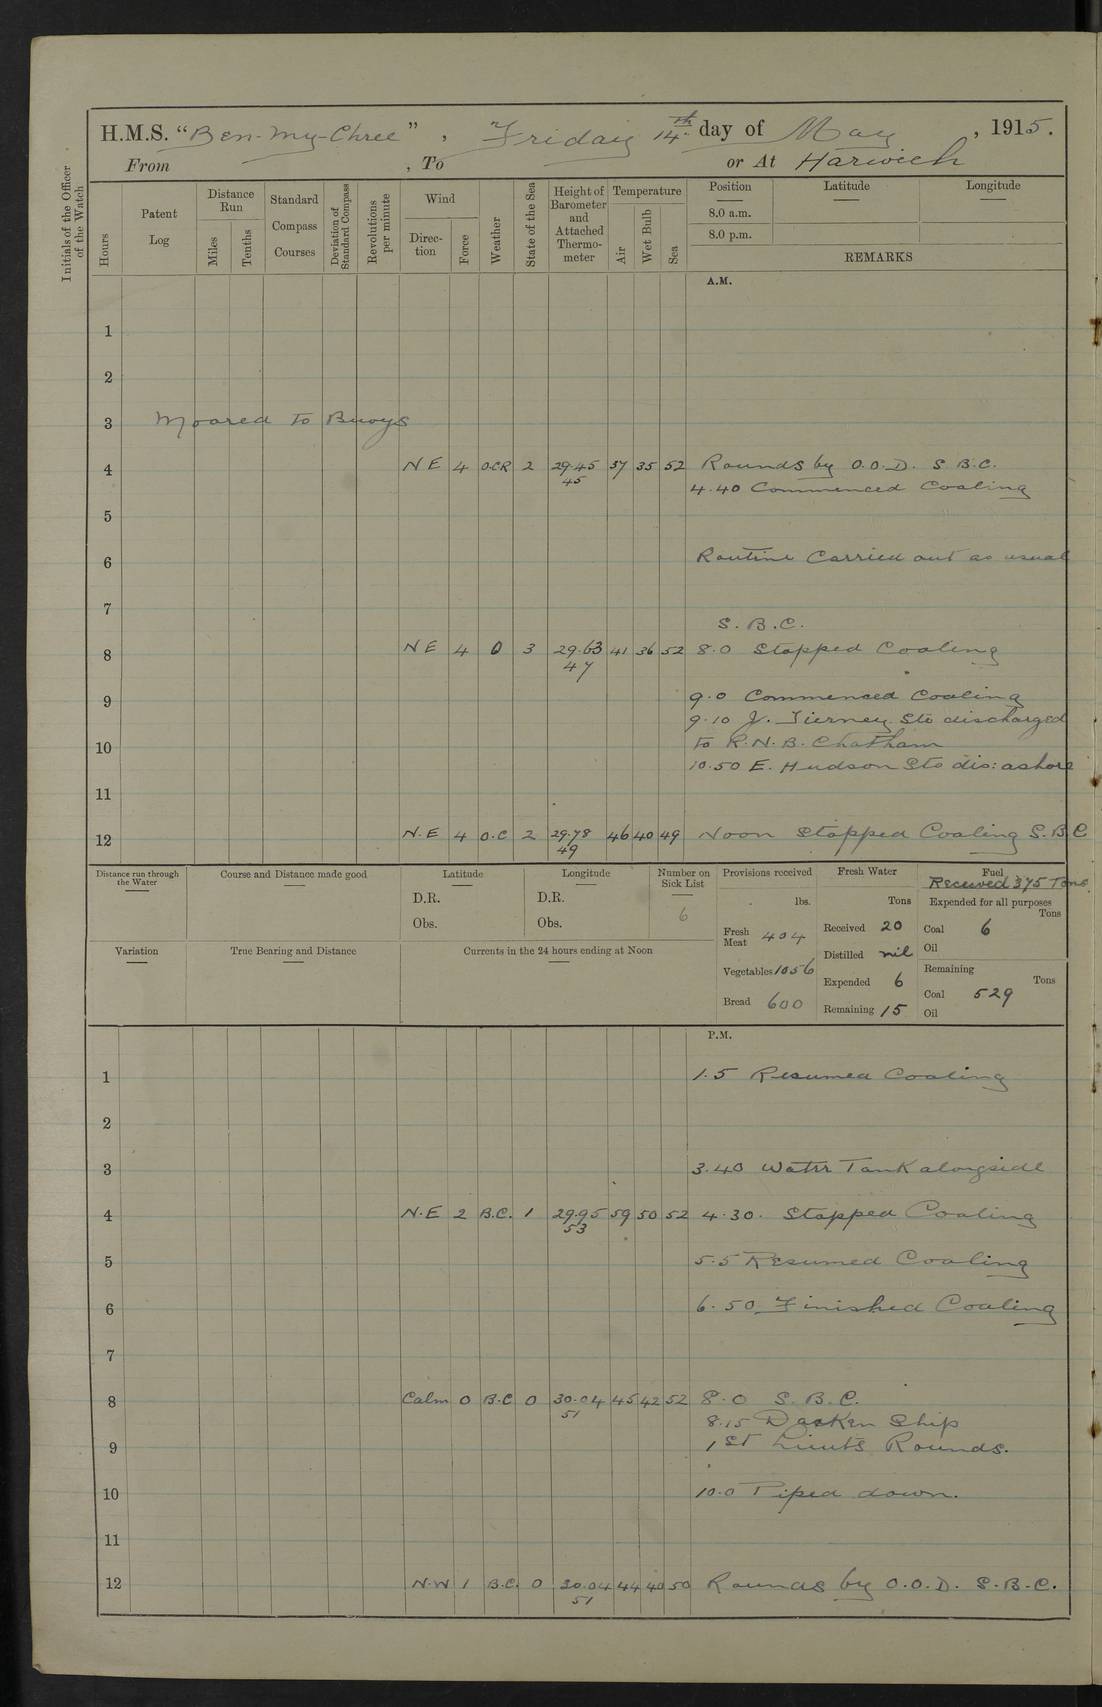 H.M.S. "Ben-my-Chree", Friday 14th day of May, 1915.
From , To or At Harwich
Initials of the Officer of the Watch
Hours
Patent Log
Distance Run
Miles
Tenths
Standard Compass Courses
Deviation of Standard Compass
Revolutions per minute
Wind
Direction
Force
Weather
State of the Sea
Height of Barometer and Attached Thermometer
Temperature
Air
Wet Bulb
Sea
Position Latitude Longitude
8.0 a.m.
8.0 p.m.
REMARKS
A.M.
1
2
3 Moored to Buoys
4 NE 4 O.C.R 2 29.45 37 35 52 Rounds by O.O.D. S.B.C.
45 4.40 Commenced Coaling
5
6 Routine Carried out as usual
7
S.B.C.
8 NE 4 O 3 29.63 41 36 52 8.0 Stopped Coaling
47
9 9.0 Commenced Coaling
9.10 J. Tierney Sto discharged
10 to R.N.B. Chatham
10.50 E. Hudson Sto dis: ashore
11
12 N.E 4 O.C 2 29.78 46 40 49 Noon Stopped Coaling S.B.C
49
Distance run through the Water
Course and Distance made good
Latitude
D.R.
Obs.
Longitude
D.R.
Obs.
Number on Sick List
6
Provisions received
lbs.
Fresh Meat 404
Vegetables 1056
Bread 600
Fresh Water
Tons
Received 20
Distilled nil
Expended 6
Remaining 15
Fuel
Received 375 Tons
Expended for all purposes
Tons
Coal 6
Oil
Remaining
Tons
Coal 529
Oil
Variation
True Bearing and Distance
Currents in the 24 hours ending at Noon
P.M.
1 1.5 Resumed Coaling
2
3 3.40 Water Tank alongside
4 N.E 2 B.C. 1 29.95 59 50 52 4.30. Stopped Coaling
53
5 5.5 Resumed Coaling
6 6.50 Finished Coaling
7
8 Calm 0 B.C 0 30.04 45 42 52 8.0 S.B.C.
51 8.15 Darken Ship
9 1st Lieuts Rounds.
10 10.0 Piped down.
11
12 N.W 1 B.C. 0 30.04 44 40 50 Rounds by O.O.D. S.B.C.
51